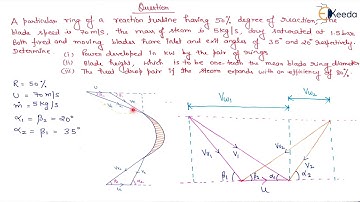 Question
Keeda
A particular ring of a reaction turbine having 50% degree of reaction, the
blade speed is 70m/s, the mass of steam is 5kg/s, dry saturated at 1.5 bar
Both fixed and moving blades have inlet and exit angles of 35° and 20° respectively.
Determine (i) Power developed in kW by the pair of rings
(ii) Blade height, which is to be one-tenth the mean blade ring diameter
(iii) The heat drop pair if the steam expands with an efficiency of 80%
R = 50%
U = 70 m/s
ṁ = 5 kg/s
α1 = β2 = 20°
α2 = β1 = 35°
Vw1
Vw2
Vr1
V1
Vr2
V2
β1
β2
α1
α2
U